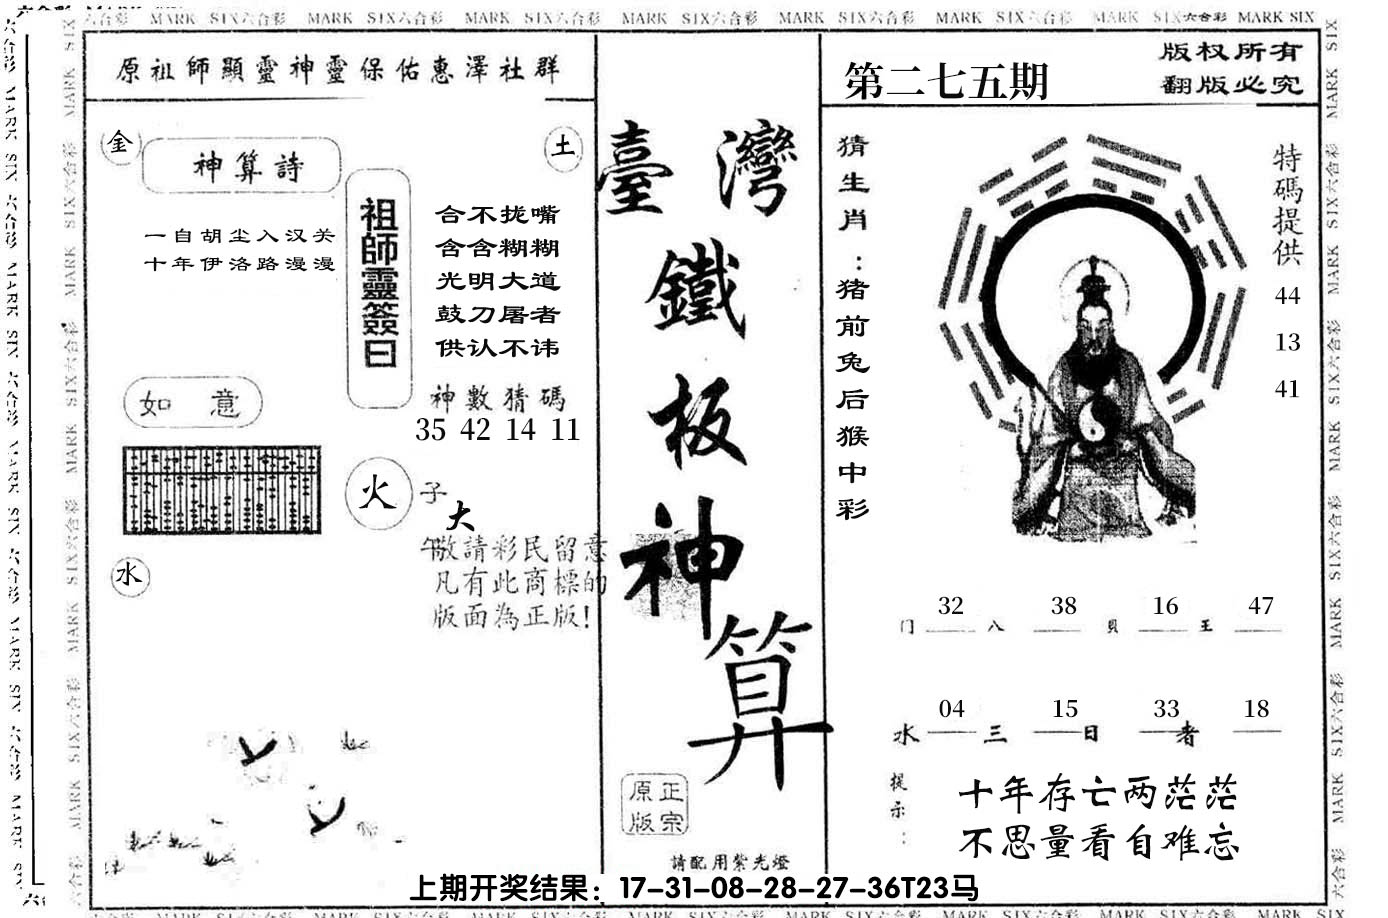 MARK SIX六合彩 MARK SIX六合彩 MARK SIX六合彩 MARK SIX六合彩 MARK SIX六合彩 MARK SIX六合彩 MARK SIX六合彩 MARK SIX
原祖師顯靈神靈保佑惠澤社群
金
土
神算詩
一自胡尘入汉关
十年伊洛路漫漫
祖師靈簽曰
合不拢嘴
含含糊糊
光明大道
鼓刀屠者
供认不讳
如意
神數猜碼
35 42 14 11
火
水
子
大
午
敬請彩民留意
凡有此商標的
版面為正版!
臺灣
鐵
板
神
算
正宗
原版
請配用紫光燈
第二七五期
版权所有
翻版必究
猜生肖：猪前兔后猴中彩
特碼提供
44
13
41
32 38 16 47
门 八 貝 王
04 15 33 18
水 三 日 者
提示：
十年存亡两茫茫
不思量看自难忘
上期开奖结果：17-31-08-28-27-36T23马